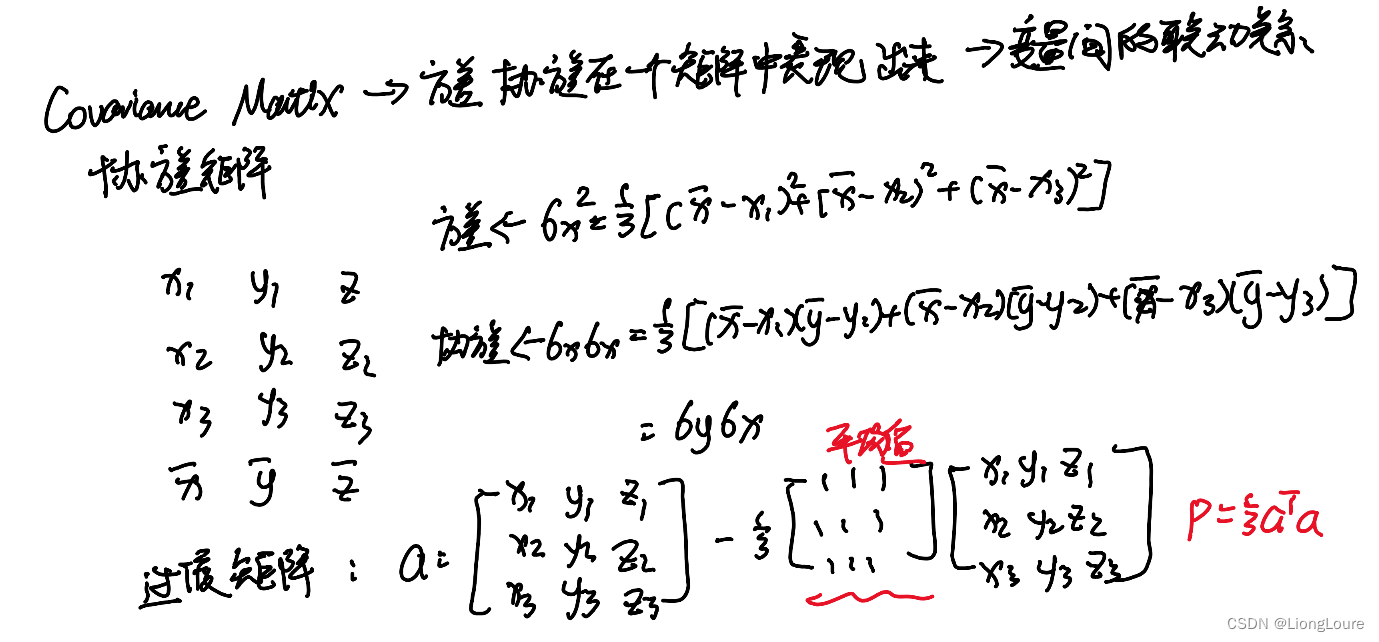 Covariance Matix → 方差 协方差在一个矩阵中表现出来 → 变量间的联动关系
协方差矩阵
方差 ← 6x² = 1/3[(x̄-x₁)²+[x̄-x₂)²+(x̄-x₃)²]
x₁ y₁ z
协方差 ← 6x6x = 1/3[(x̄-x₁)(ȳ-y₁)+(x̄-x₂)(ȳ-y₂)+(x̄-x₃)(ȳ-y₃)]
x₂ y₂ z₂
x₃ y₃ z₃
= 6y6x
x̄ ȳ z̄
平均值
过渡矩阵: a = [x₁ y₁ z₁
x₂ y₂ z₂
x₃ y₃ z₃] - 1/3 [1 1 1
1 1 1
1 1 1] [x₁ y₁ z₁
x₂ y₂ z₂
x₃ y₃ z₃]
P = 1/3 aᵀa
CSDN @LiongLoure